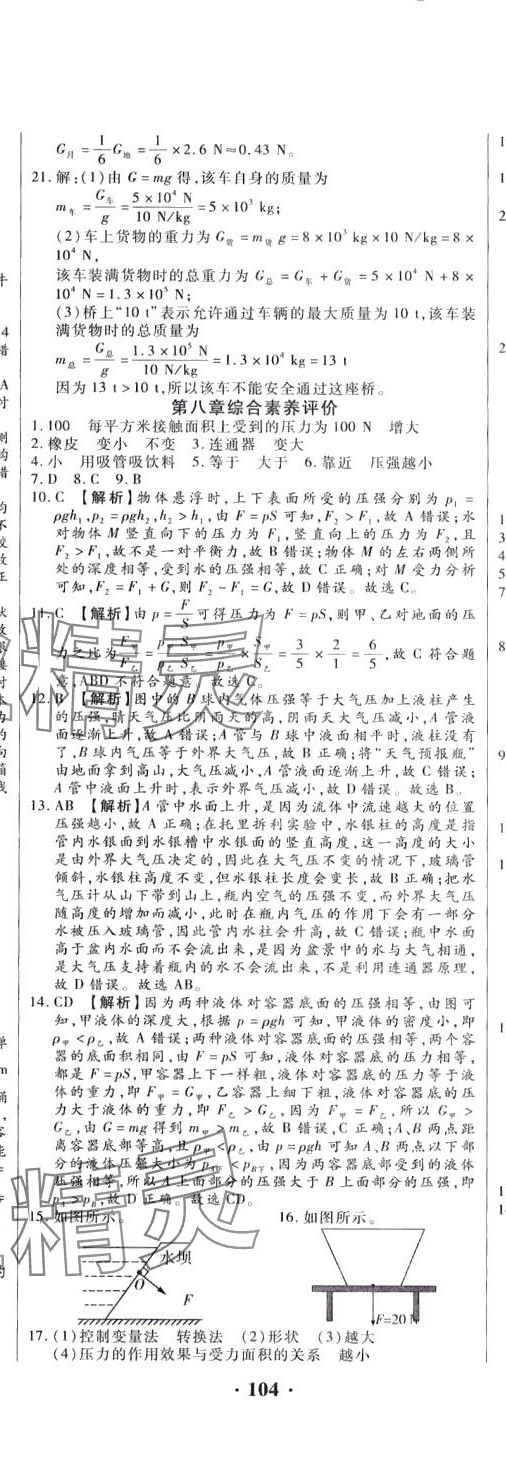 G月=1/6G地=1/6×2.6 N≈0.43 N。
21.解:(1)由G=mg得,该车自身的质量为
m车=G车/g=5×10⁴ N/10 N/kg=5×10³ kg;
(2)车上货物的重力为G货=m货g=8×10³ kg×10 N/kg=8×
10⁴ N,
该车装满货物时的总重力为G总=G车+G货=5×10⁴ N+8×
10⁴ N=1.3×10⁵ N;
(3)桥上“10 t”表示允许通过车辆的最大质量为10 t,该车装
满货物时的总质量为
m总=G总/g=1.3×10⁵ N/10 N/kg=1.3×10⁴ kg=13 t
因为13 t>10 t,所以该车不能安全通过这座桥。
第八章综合素养评价
1.100 每平方米接触面积上受到的压力为100 N 增大
2.橡皮 变小 不变 3.连通器 变大
4.小 用吸管吸饮料 5.等于 大于 6.靠近 压强越小
7.D 8.C 9.B
10.C 【解析】物体悬浮时,上下表面所受的压强分别为p₁=
ρgh₁,p₂=ρgh₂,h₂>h₁,由F=pS可知,F₂>F₁,故A错误;水
对物体M竖直向下的力为F₁,竖直向上的力为F₂,且
F₂>F₁,故不是一对平衡力,故B错误;物体M的左右两侧所
处的深度相等,受到水的压强相等,故C正确;对M受力分析
可知,F₂=F₁+G,则F₂-F₁=G,故D错误。故选C。
11.C 【解析】由p=F/S可得压力为F=pS,则甲、乙对地面的压
力之比为F甲/F乙=p甲/p乙×S甲/S乙=3/5×2/1=6/5,故C符合题
意,ABD不符合题意。故选C。
12.B 【解析】图中的B球内气体压强等于大气压加上液柱产生
的压强,晴天气压比阴雨天的高,阴雨天大气压减小,A管液
面逐渐上升,故A错误;A管与B球中液面相平时,液柱没有
了,B球内气压等于外界大气压,故B正确;将“天气预报瓶”
由地面拿到高山,大气压减小,A管液面逐渐上升,故C错误;
A管中液面上升时,表示外界气压减小,故D错误。故选B。
13.AB 【解析】A管中水面上升,是因为流体中流速越大的位置
压强越小,故A正确;在托里拆利实验中,水银柱的高度是指
管内水银面到水银槽中水银面的竖直高度,这一高度的大小
是由外界大气压决定的,因此在大气压不变的情况下,玻璃管
倾斜,水银柱高度不变,但水银柱长度会变长,故B正确;把水
气压计从山下带到山上,瓶内空气的压强不变,而外界大气压
随高度的增加而减小,此时在瓶内气压的作用下会有一部分
水被压入玻璃管,因此管内水柱会升高,故C错误;瓶中水面
高于盆内水面而不会流出来,是因为盆景中的水与大气相通,
是大气压支持着瓶内的水不会流出来,不是利用连通器原理,
故D错误。故选AB。
14.CD 【解析】因为两种液体对容器底面的压强相等,由图可
知,甲液体的深度大,根据p=ρgh可知,甲液体的密度小,即
ρ甲<ρ乙,故A错误;两种液体对容器底面的压强相等,两个容
器的底面积相同,由F=pS可知,液体对容器底的压力相等,
都是F=pS,甲容器上下一样粗,液体对容器底的压力等于液
体的重力,即F甲=G甲,乙容器上细下粗,液体对容器底的压
力大于液体的重力,即F乙>G乙,因为F甲=F乙,所以G甲>
G乙,由G=mg得到m甲>m乙,故B错误,C正确;A、B两点距
离容器底部等高,且ρ甲<ρ乙,由p=ρgh可知A、B两点以下部
分的液体压强大小为pA下<pB下,因为两容器底部受到的液体
压强相等,所以A上面部分的压强大于B上面部分的压强,即
pA>pB,故D正确。故选CD。
15.如图所示。 16.如图所示。
水坝
O
F
F=20 N
17.(1)控制变量法 转换法 (2)形状 (3)越大
(4)压力的作用效果与受力面积的关系 越小
· 104 ·
精灵
精灵